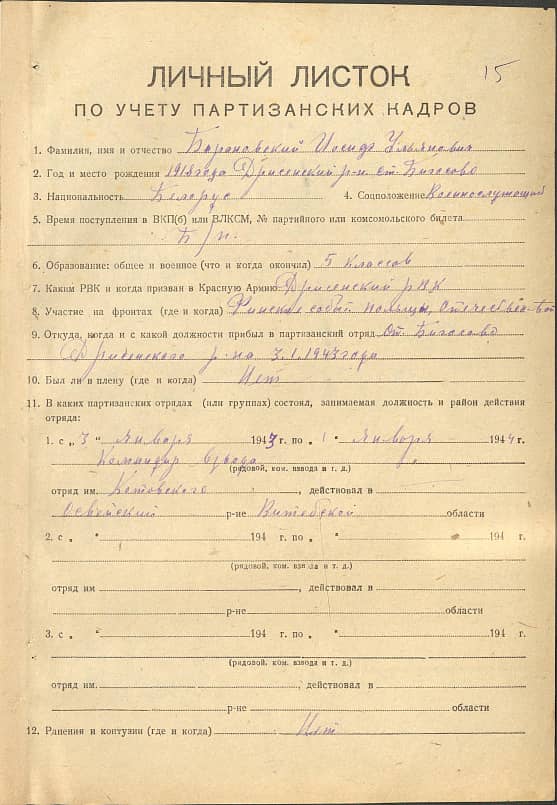 15
ЛИЧНЫЙ ЛИСТОК
ПО УЧЕТУ ПАРТИЗАНСКИХ КАДРОВ
1. Фамилия, имя и отчество Барановский Иосиф Ульянович
2. Год и место рождения 1918 года Дрисенский р-н ст. Бигосово
3. Национальность Белорус 4. Соцположение Военнослужащий
5. Время поступления в ВКП(б) или ВЛКСМ, № партийного или комсомольского билета
Б/п.
6. Образование: общее и военное (что и когда окончил) 5 классов
7. Каким РВК и когда призван в Красную Армию Дрисенский РВК
8. Участие на фронтах (где и когда) Финские событ польщы, Отечествен-вой
9. Откуда, когда и с какой должности прибыл в партизанский отряд От. Бигосово
Дрисенского р-на 3.1.1943 года
10. Был ли в плену (где и когда) Нет
11. В каких партизанских отрядах (или группах) состоял, занимаемая должность и район действия
отряда:
1. с „ 3 " января 1943 г. по „ 1 " января 1944 г.
Командир взвода
(рядовой, ком. взвода и т. д.)
отряд им. Котовского, действовал в
Освейский р-не Витебской области
2. с „ " 194 г. по „ " 194 г.
(рядовой, ком. взвода и т. д.)
отряд им, действовал в
р-не области
3. с „ " 194 г. по „ " 194 г.
(рядовой, ком. взвода и т. д.)
отряд им., действовал в
р-не области
12. Ранения и контузии (где и когда) Нет